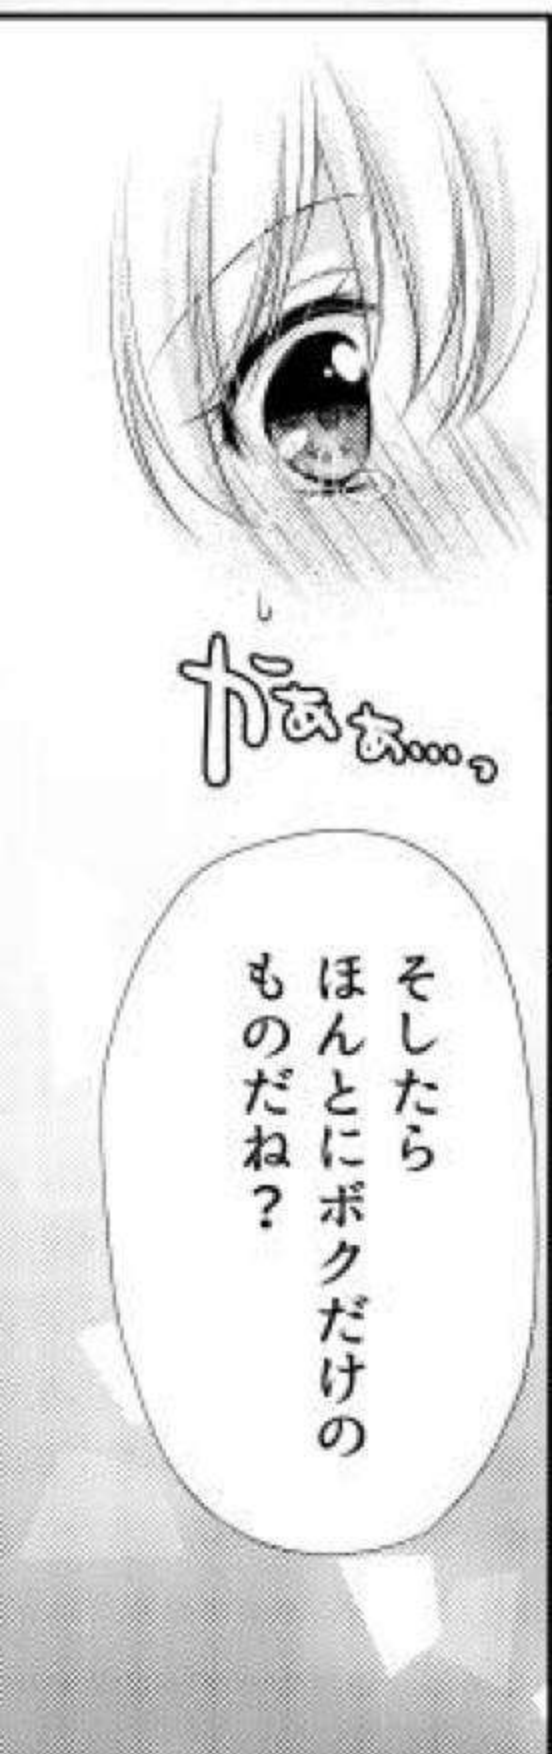 かぁぁ…っ
そしたら
ほんとにボクだけの
ものだね？